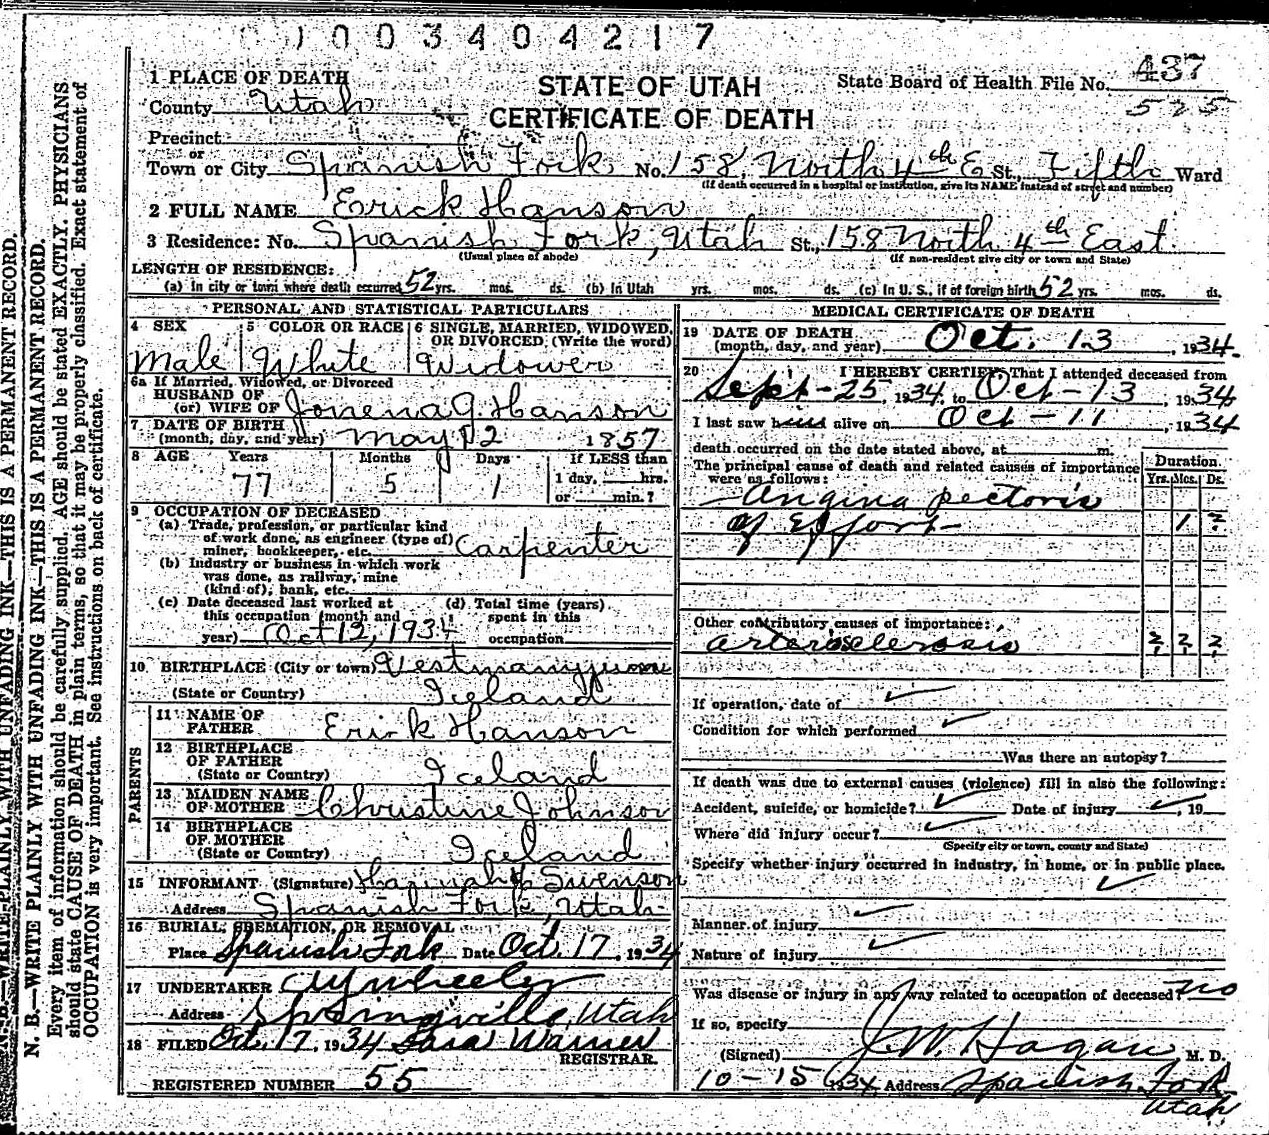 003404217
1 PLACE OF DEATH
STATE OF UTAH
CERTIFICATE OF DEATH
State Board of Health File No. 437
525
County Utah
Precinct
or
Town or City Spanish Fork No. 158, North 4th E St., Fifth Ward
(If death occurred in a hospital or institution, give its NAME instead of street and number)
2 FULL NAME Erick Hanson
3 Residence: No. Spanish Fork, Utah St., 158 North 4th East
(Usual place of abode) (If non-resident give city or town and State)
LENGTH OF RESIDENCE:
(a) In city or town where death occurred 52 yrs. mos. ds. (b) In Utah yrs. mos. ds. (c) In U. S., if of foreign birth 52 yrs. mos. ds.
PERSONAL AND STATISTICAL PARTICULARS
4 SEX 5 COLOR OR RACE 6 SINGLE, MARRIED, WIDOWED, OR DIVORCED (Write the word)
Male White Widower
6a If Married, Widowed, or Divorced
HUSBAND OF
(or) WIFE OF Hanson
7 DATE OF BIRTH
(month, day, and year) May 12 1857
8 AGE Years Months Days If LESS than
77 5 1 1 day, hrs.
or min.?
9 OCCUPATION OF DECEASED
(a) Trade, profession, or particular kind
of work done, as engineer (type of)
miner, bookkeeper, etc. Carpenter
(b) Industry or business in which work
was done, as railway, mine
(kind of), bank, etc.
(c) Date deceased last worked at
this occupation (month and
year) Oct 12, 1934
(d) Total time (years)
spent in this
occupation
10 BIRTHPLACE (City or town)
(State or Country) Iceland
PARENTS
11 NAME OF
FATHER Erick Hanson
12 BIRTHPLACE
OF FATHER
(State or Country) Iceland
13 MAIDEN NAME
OF MOTHER Christine Johnson
14 BIRTHPLACE
OF MOTHER
(State or Country) Iceland
15 INFORMANT (Signature) Hannah Swenson
Address Spanish Fork, Utah
16 BURIAL, CREMATION, OR REMOVAL
Place Spanish Fork Date Oct. 17, 1934
17 UNDERTAKER Wheeler
Address Springville, Utah
18 FILED Oct. 17, 1934 Sara Warner
REGISTRAR.
REGISTERED NUMBER 55
MEDICAL CERTIFICATE OF DEATH
19 DATE OF DEATH
(month, day, and year) Oct. 13, 1934.
20 I HEREBY CERTIFY That I attended deceased from
Sept-25, 1934, to Oct-13, 1934
I last saw him alive on Oct-11, 1934
death occurred on the date stated above, at m.
The principal cause of death and related causes of importance
were as follows:
Duration
Yrs. Mos. Ds.
Angina pectoris
of Effort 1 ?
Other contributory causes of importance:
Arteriosclerosis ? ? ?
If operation, date of
Condition for which performed
Was there an autopsy?
If death was due to external causes (violence) fill in also the following:
Accident, suicide, or homicide? Date of injury , 19
Where did injury occur?
(Specify city or town, county and State)
Specify whether injury occurred in industry, in home, or in public place.
Manner of injury
Nature of injury
Was disease or injury in any way related to occupation of deceased? no
If so, specify
(Signed) J. W. Hagan, M. D.
10-15 1934 Address Spanish Fork
Utah
N. B.—WRITE PLAINLY, WITH UNFADING INK—THIS IS A PERMANENT RECORD.
N. B.—WRITE PLAINLY WITH UNFADING INK—THIS IS A PERMANENT RECORD.
Every item of information should be carefully supplied. AGE should be stated EXACTLY. PHYSICIANS
should state CAUSE OF DEATH in plain terms, so that it may be properly classified. Exact statement of
OCCUPATION is very important. See instructions on back of certificate.